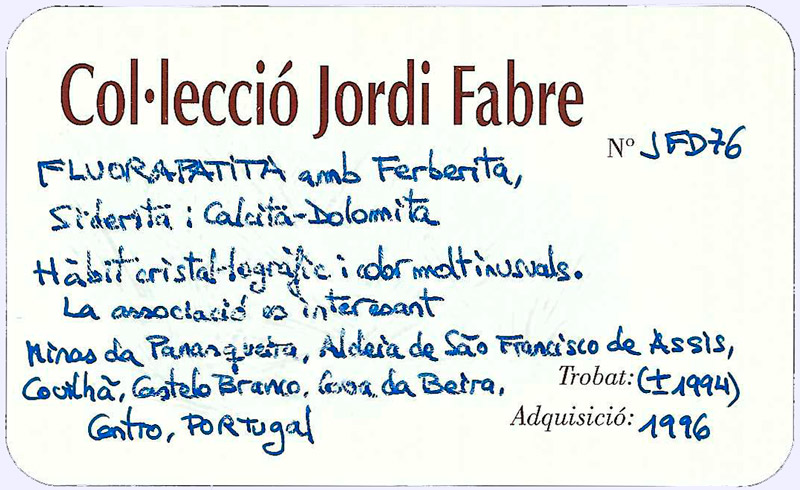 Col·lecció Jordi Fabre
Nº JFD76
FLUORAPATITA amb Ferberita,
Siderita i Calcita-Dolomita
Hàbit cristal·logràfic i color molt inusuals.
La associació es interesant
Minas da Panasqueira, Aldeia de São Francisco de Assis,
Covilhã, Castelo Branco, Cova da Beira,
Trobat: (± 1994)
Centro, PORTUgal
Adquisició: 1996